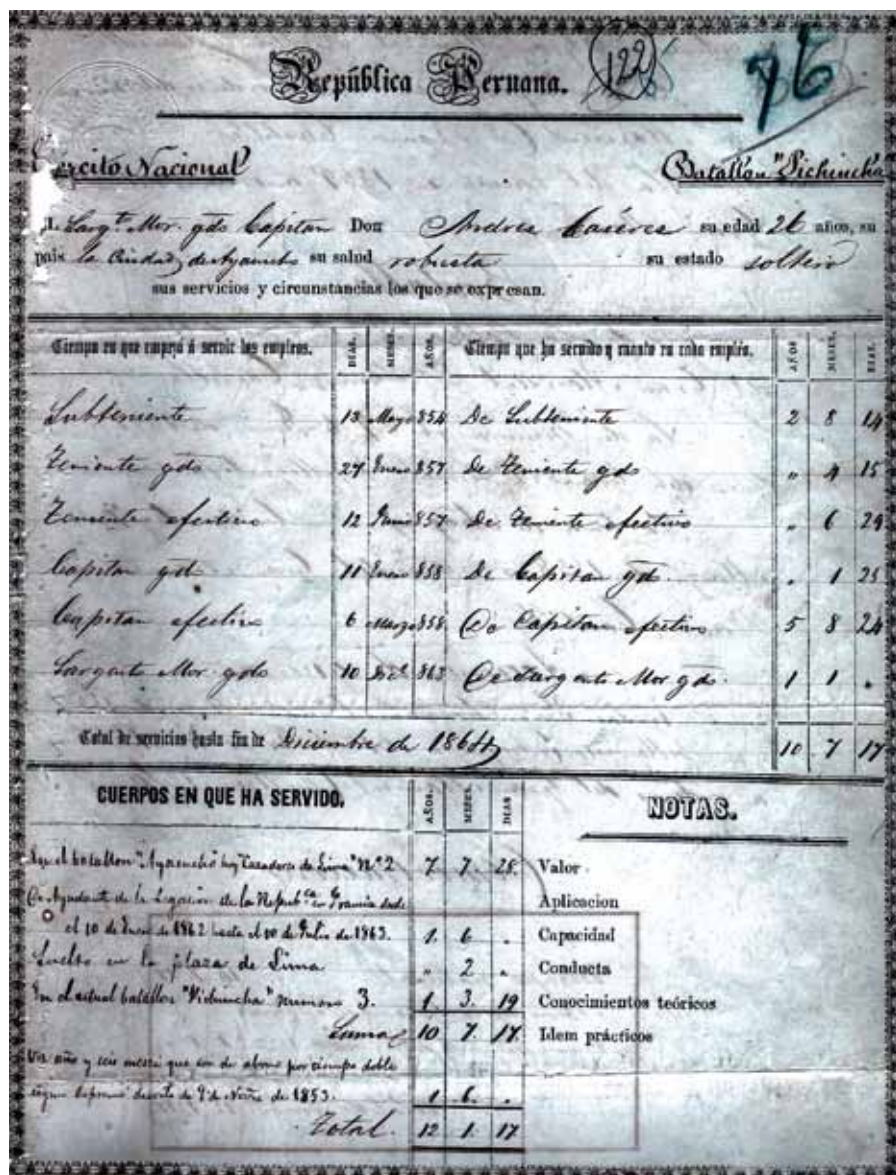 República Peruana.
122
76
Ejercito Nacional
Batallon "Pichincha
Sargto. Mor. gdo Capitan Don Andres Cáceres su edad 26 años, su
pais la Ciudad de Ayacucho su salud robusta su estado soltero
sus servicios y circunstancias los que se expresan.
Tiempo en que empezó á servir los empleos. DIAS. MESES. AÑOS. Tiempo que ha servido y cuanto en cada empléo. AÑOS MESES. DIAS.
Subteniente 13 Mayo 854 De Subteniente 2 8 14
Teniente gdo 27 Enero 857 De Teniente gdo " 4 15
Teniente efectivo 12 Junio 857 De Teniente efectivo " 6 29
Capitan gdo 11 Enero 858 De Capitan gdo. " 1 25
Capitan efectivo 6 Marzo 858 De Capitan efectivo 5 8 24
Sargento Mor gdo 10 Dice. 863 De Sargento Mor gdo. 1 1 "
Total de servicios hasta fin de Diciembre de 1864 10 7 17
CUERPOS EN QUE HA SERVIDO. AÑOS. MESES. DIAS NOTAS.
batallon "Ayacucho" hoy "Cazadores de Lima" N.º 2 7. 7. 28. Valor
De Ayudante de la Legacion de la Repubca. en Francia desde Aplicacion
el 10 de Enero de 1862 hasta el 10 de Julio de 1863. 1. 6 " Capacidad
Suelto en la plaza de Lima " 2 " Conducta
En el actual batallon "Pichincha" numero 3. 1. 3. 19 Conocimientos teóricos
Suma 10 7. 17. Idem prácticos
año y seis meses que son de abono por tiempo doble
segun Supremo decreto de 9 de Novre. de 1853. 1 6. "
Total. 12 1 17